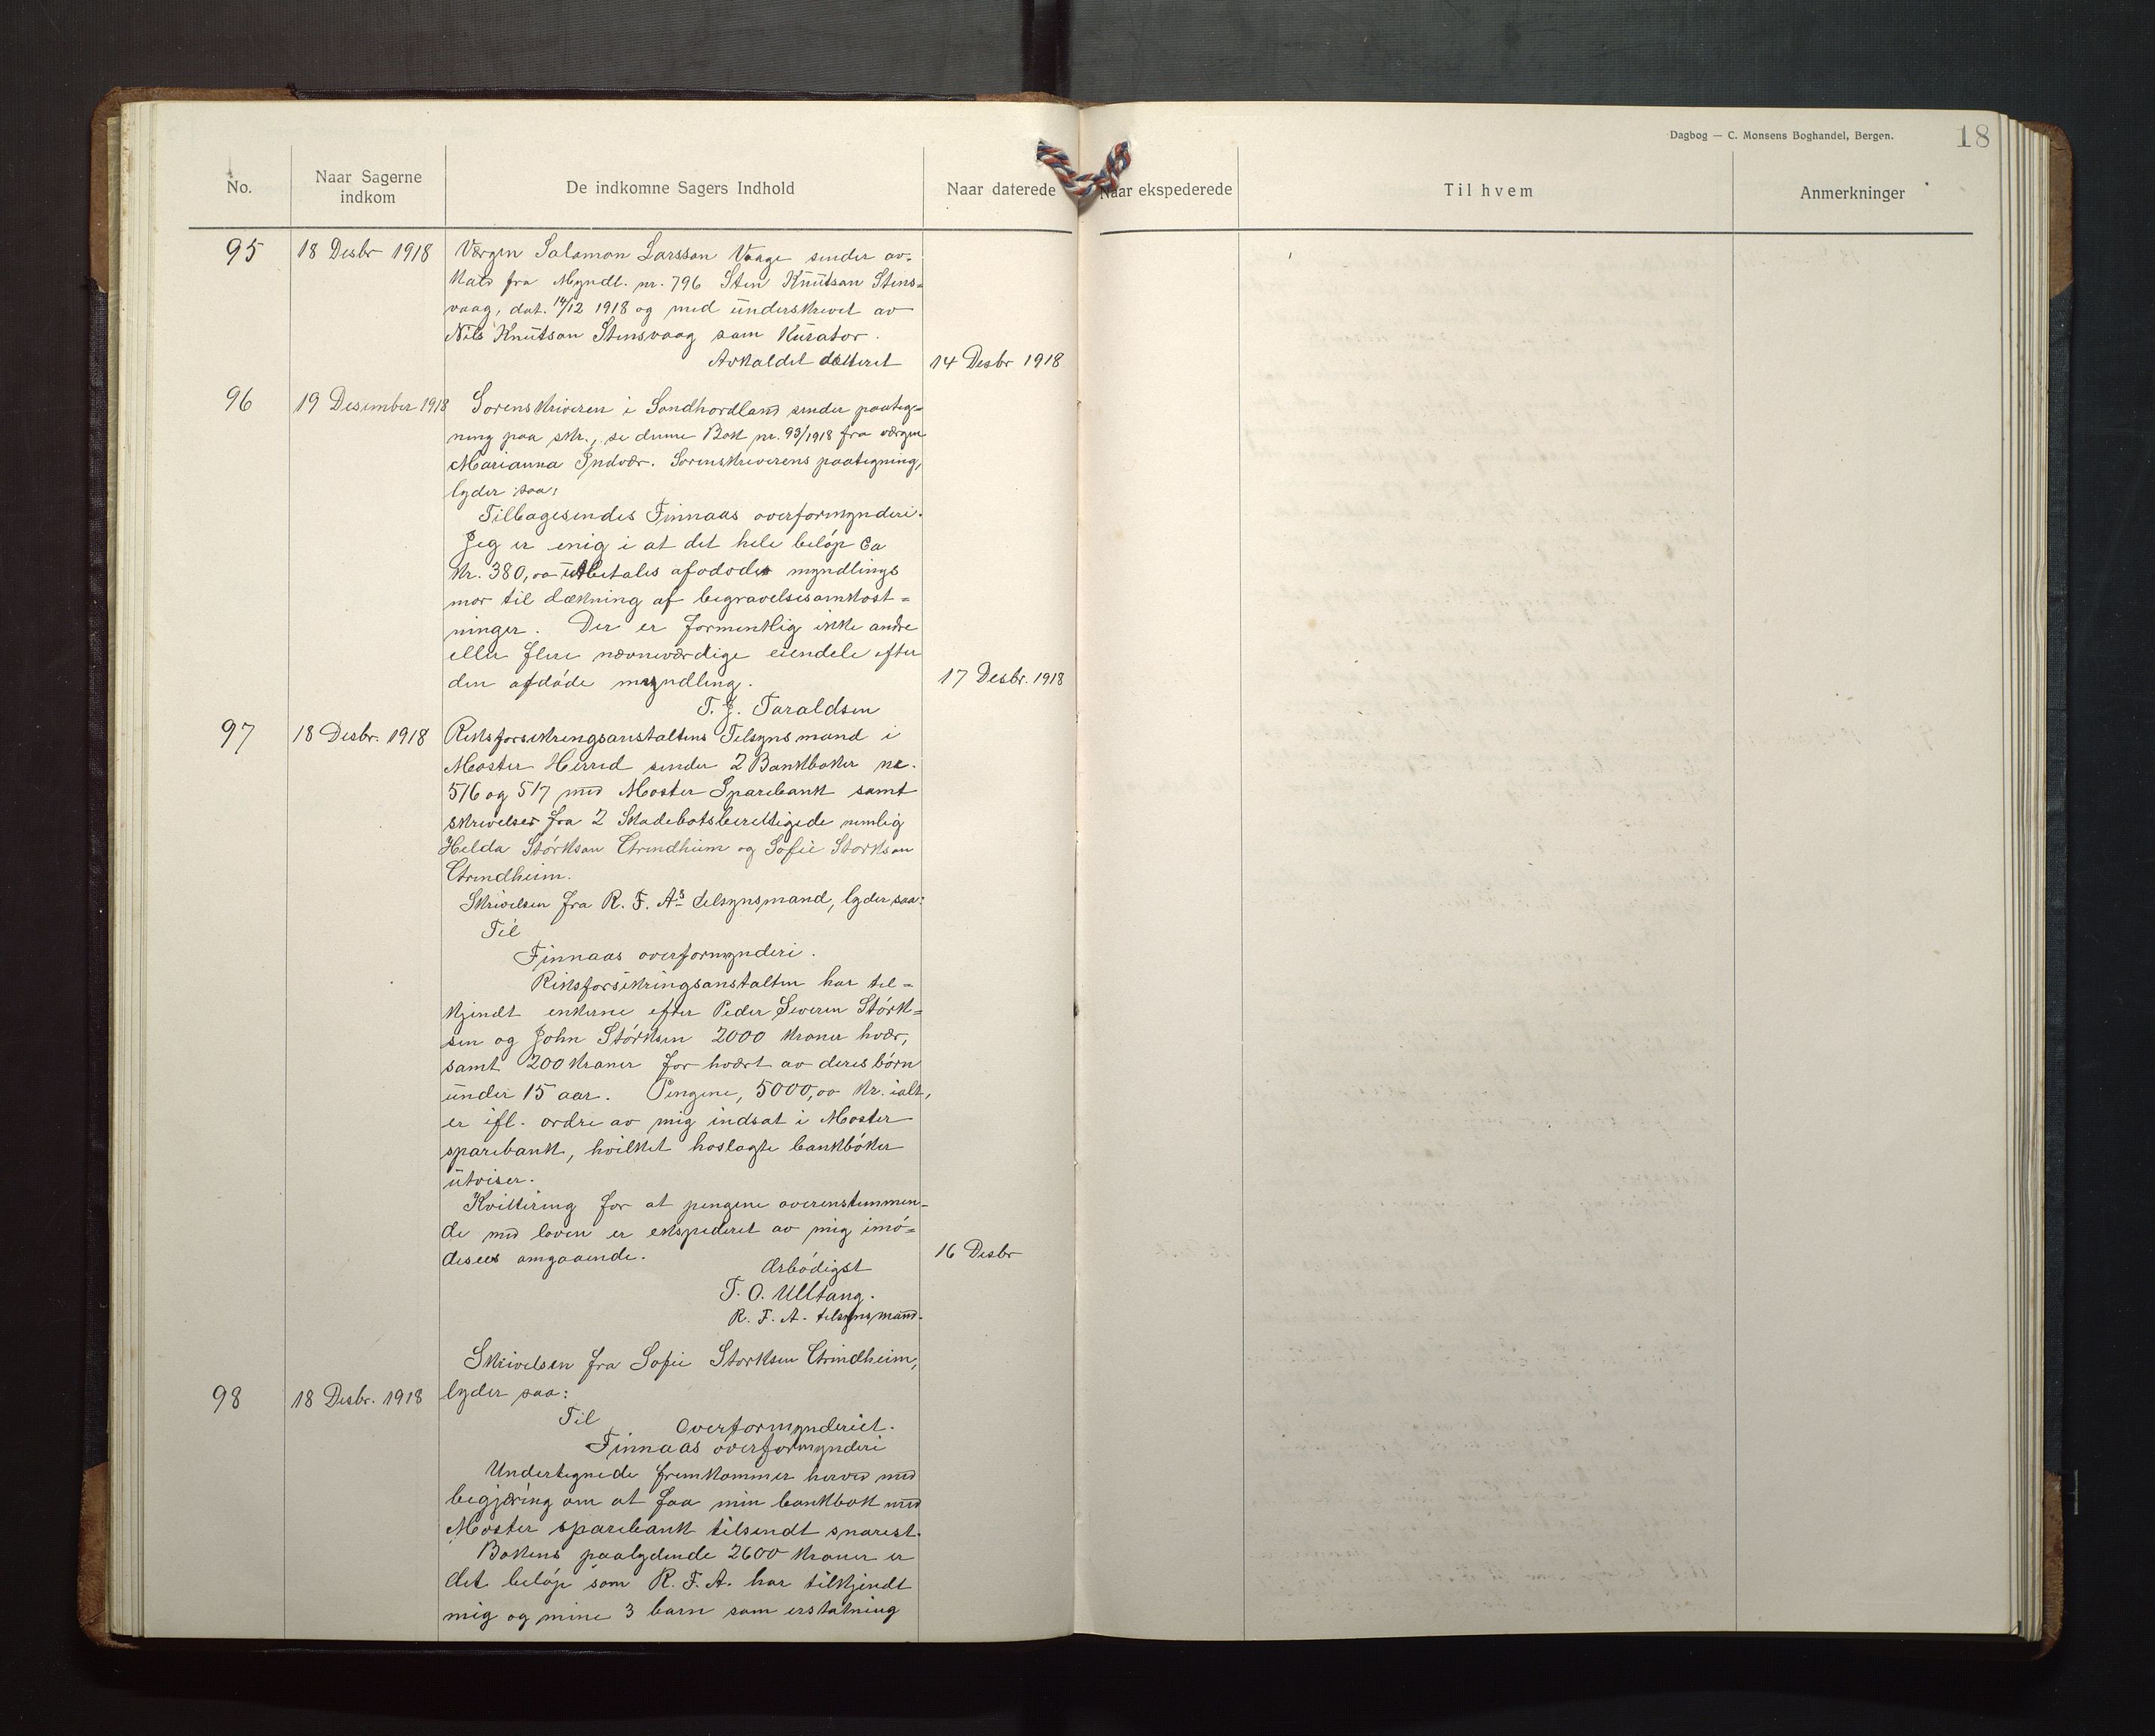 Dagbog — C. Monsens Boghandel, Bergen.
18
No.
Naar Sagerne indkom
De indkomne Sagers Indhold
Naar daterede
Naar ekspederede
Til hvem
Anmerkninger
95
18 Desbr 1918
Værgen Salamon Larsson Vaage sender av-
kald fra Myndl. nr. 796 Sten Knutson Stens-
vaag, dat. 14/12 1918 og med underskrevet av
Nils Knutson Stensvaag som Kurator.
Avkaldet datteret
14 Desbr 1918
96
19 Desember 1918
Sorenskriveren i Søndhordland sender paateg-
ning paa skr., se denne Bok nr. 93/1918 fra værgen
Marianna Indvær. Sorenskriverens paategning,
lyder saa:
Tilbagesendes Finnaas overformynderi.
Jeg er enig i at det hele beløp Ca
Kr. 380,00 utbetales afdødes myndlings
mor til dækning af begravelsesomkost-
ninger. Der er formentlig ikke andre
eller flere nævneværdige eiendele efter
den afdøde myndling.
17 Desbr. 1918
T. J. Taraldsen
97
18 Desbr. 1918
Riksforsikringsanstaltens Tilsynsmand i
Moster Herred sender 2 Bankbøker nr.
516 og 517 med Moster Sparebank samt
skrivelser fra 2 Skadebotsberettigede nemlig
Helda Størkson Trindheim og Sofie Storkson
Trindheim.
Skrivelsen fra R. F. As tilsynsmand, lyder saa:
Til
Finnaas overformynderi.
Riksforsikringsanstalten har til-
kjendt enkerne efter Peder Severin Størk-
sen og John Størksen 2000 kroner hver,
samt 200 kroner for hvert av deres børn
under 15 aar. Pengene, 5000,00 kr. ialt,
er ifl. ordre av mig indsat i Moster
sparebank, hvilket hoslagte bankbøker
utviser.
Kvittering for at pengene overenstemmen-
de med loven er ekspederet av mig imø-
desees omgaaende.
16 Desbr
Ærbødigst
T. O. Ulltang.
R. F. A. tilsynsmand.
98
18 Desbr. 1918
Skrivelsen fra Sofie Storksen Trindheim,
lyder saa:
Til
Overformynderiet.
Finnaas overformynderi
Undertegnede fremkommer herved med
begjæring om at faa min bankbok med
Moster sparebank tilsendt snarest.
Bokens paalydende 2600 kroner er
det beløp som R. F. A. har tilkjendt
mig og mine 3 barn som erstatning